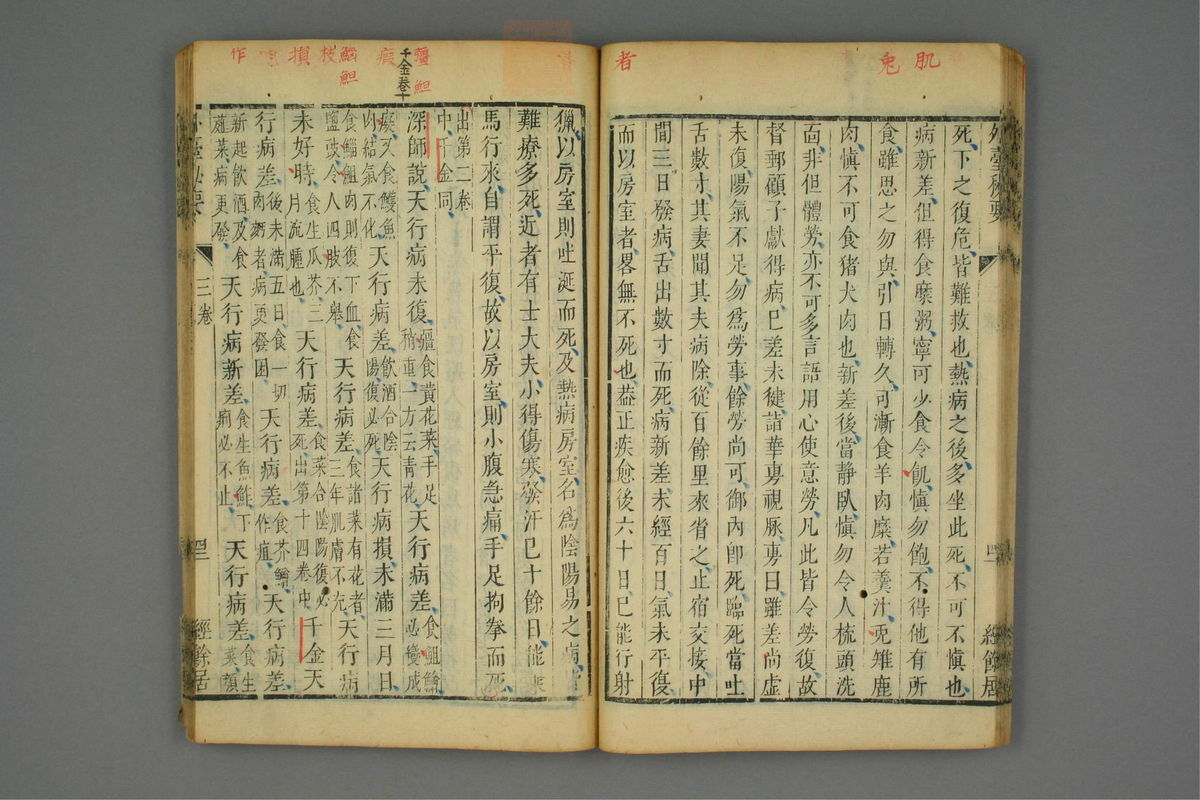 者
兔
肌
外臺秘要
四二
經餘居
死下之復危皆難救也熱病之後多坐此死不可不慎也
病新差但得食糜粥寧可少食令飢慎勿飽不得他有所
食雖思之勿與引日轉久可漸食羊肉糜若羹汁兎雉鹿
肉慎不可食猪犬肉也新差後當靜臥慎勿令人梳頭洗
面非但體勞亦不可多言語用心使意勞凡此皆令勞復故
督郵顧子獻得病已差未徤詣華旉視脉旉曰雖差尚虛
未復陽氣不足勿爲勞事餘勞尚可御內即死臨死當吐
舌數寸其妻聞其夫病除從百餘里來省之止宿交接中
間三日發病舌出數寸而死病新差未經百日氣未平復
而以房室者畧無不死也葢正疾愈後六十日已能行射
獵以房室則吐涎而死及熱病房室名爲陰陽易之病皆
難療多死近者有士大夫小得傷寒發汗已十餘日能乘
馬行來自謂平復故以房室則小腹急痛手足拘拳而死
出第二卷
中千金同
深師說天行病未復 食黃花菜手足
稍重一方云青花 天行病差 食
必變成
瘕又食鱔魚
肉結氣不化 天行病差 飲酒合陰
陽復必死 天行病損未滿三月日
食 肉則復下血食
鹽豉令人四肢不舉 天行病差 食諸菜有花者
三年肌膚不充 天行病
未好時 食生瓜芥三
月流腫也 天行病差 食菜合陰陽復必
死出第十四卷中 千金天
行病差後未滿五日食一切
肉 者病更發困 天行病差 食芥
作疽 天行病差
新起飲酒及食
薤菜病更發 天行病新差 食生魚鮓下
痢必不止 天行病差 食生
菜
三卷
四二
經餘居
千金卷十
瘕
枝
損
作